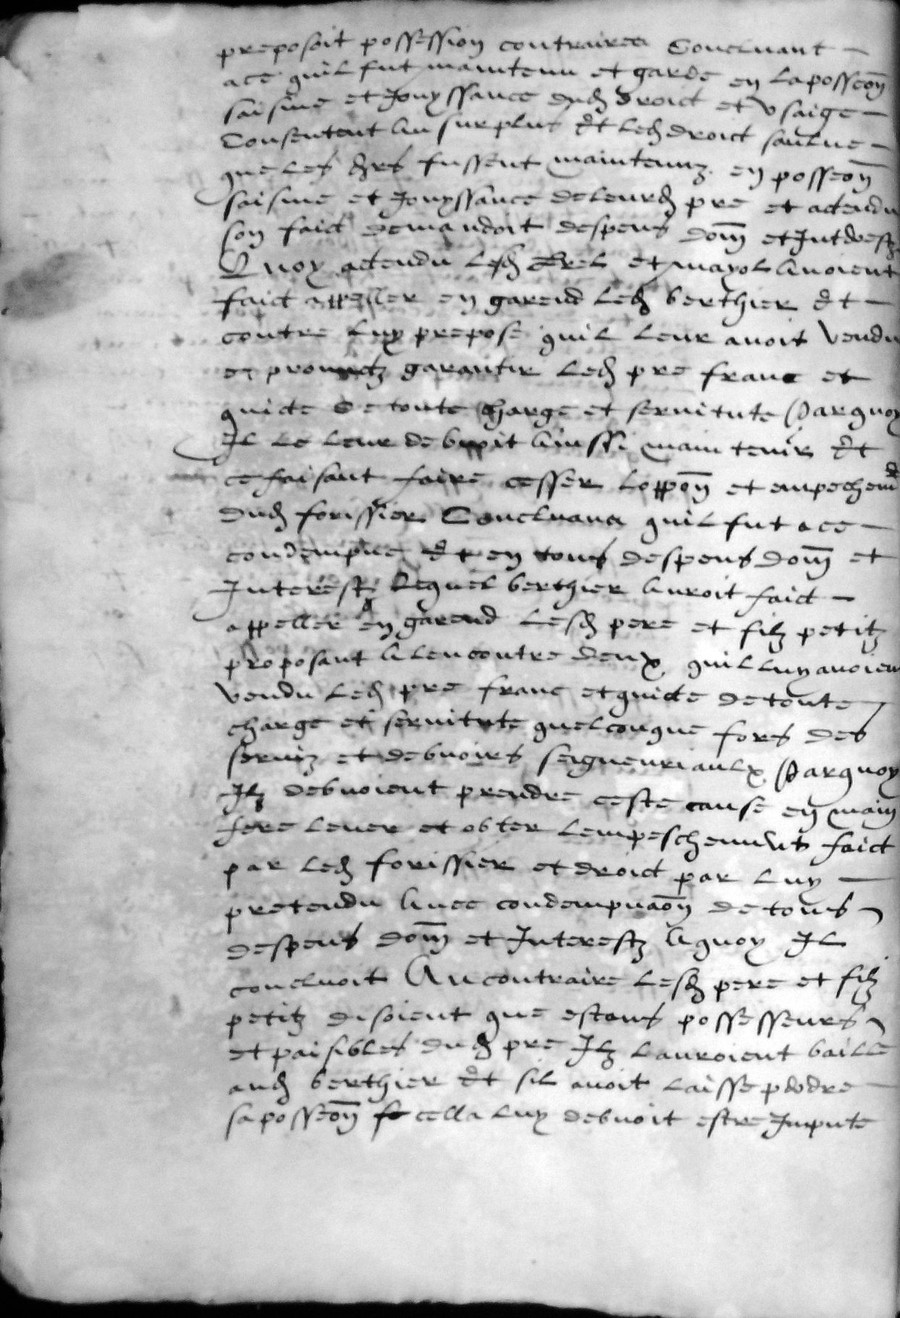 preposoit possession contraires Concluant
ace quil fut maintenu et garde en la posseon
saisine et Jouyssance dud droict et usaige
Consentent au surplus et led droict saulve
que les drs fussent maintenuz en posseon
saisine et Jouyssance de leurd pre et actendu
son faict demandoit despens dom et Intrestz
Quoy actendu lesd et mayol avoient
faict appeller en garend led berthier et
contre luy prepose quil leur avoit vendu
et promectz garantir led pre franc et
quicte de toute charge et servitute Parquoy
Il le leur debvoit ainssi maintenir et
ce faisant faire cesser loppon et empechemt
dud forissier Concluans quil fut ace
condempne et en tous despens dom et
Interestz Lequel berthier auroit faict
appeller en garend Lesd pere et filz petitz
proposant a lencontre deux quil luy avoient
vendu led pre franc et quicte de toute
charge et servitute quelconque fors des
serviz et debvoirs seigneuriaulx Parquoy
Ilz debvoient prendre ceste cause en main
fere lever et obter lempeschement faict
par led forissier et droict par luy
pretendu avec condempnaon de tous
despens dom et Interestz aquoy Il
concluoit Au contraire lesd pere et filz
petitz disoient que estans possesseurs
et paisibles dud pre Ilz lauroient baille
aud berthier et sil avoit laisse perdre
sa posseon cella luy debvoit estre Impute